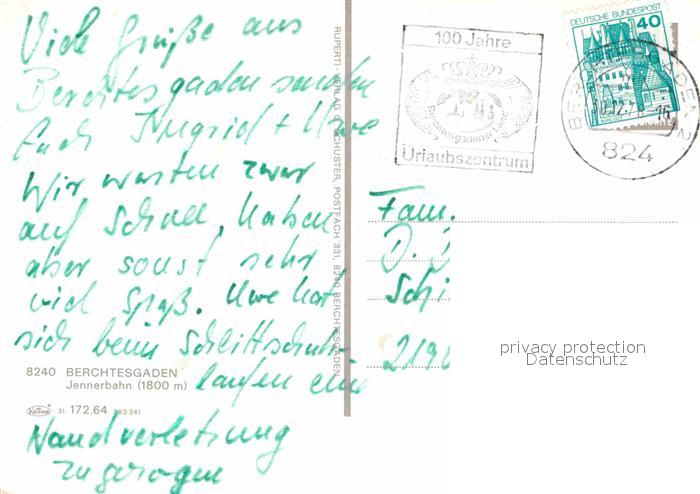 Viele Grüße aus
Berchtesgaden senden
Euch Ingrid + Uwe
Wir warten zwar
auf Schnee, haben
aber sonst sehr
viel Spaß. Uwe hat
sich beim Schlittschuh-
laufen eine
Handverletzung
zugezogen
8240 BERCHTESGADEN
Jennerbahn (1800 m)
31. 172.64 362.341
RUPERTI-VERLAG SCHUSTER, POSTFACH 331, 8240 BERCHTESGADEN
100 Jahre
Berchtesgadener Land
Urlaubszentrum
DEUTSCHE BUNDESPOST
40
BERCHTESGADEN
824
Fam.
D.
Schi
219
privacy protection
Datenschutz